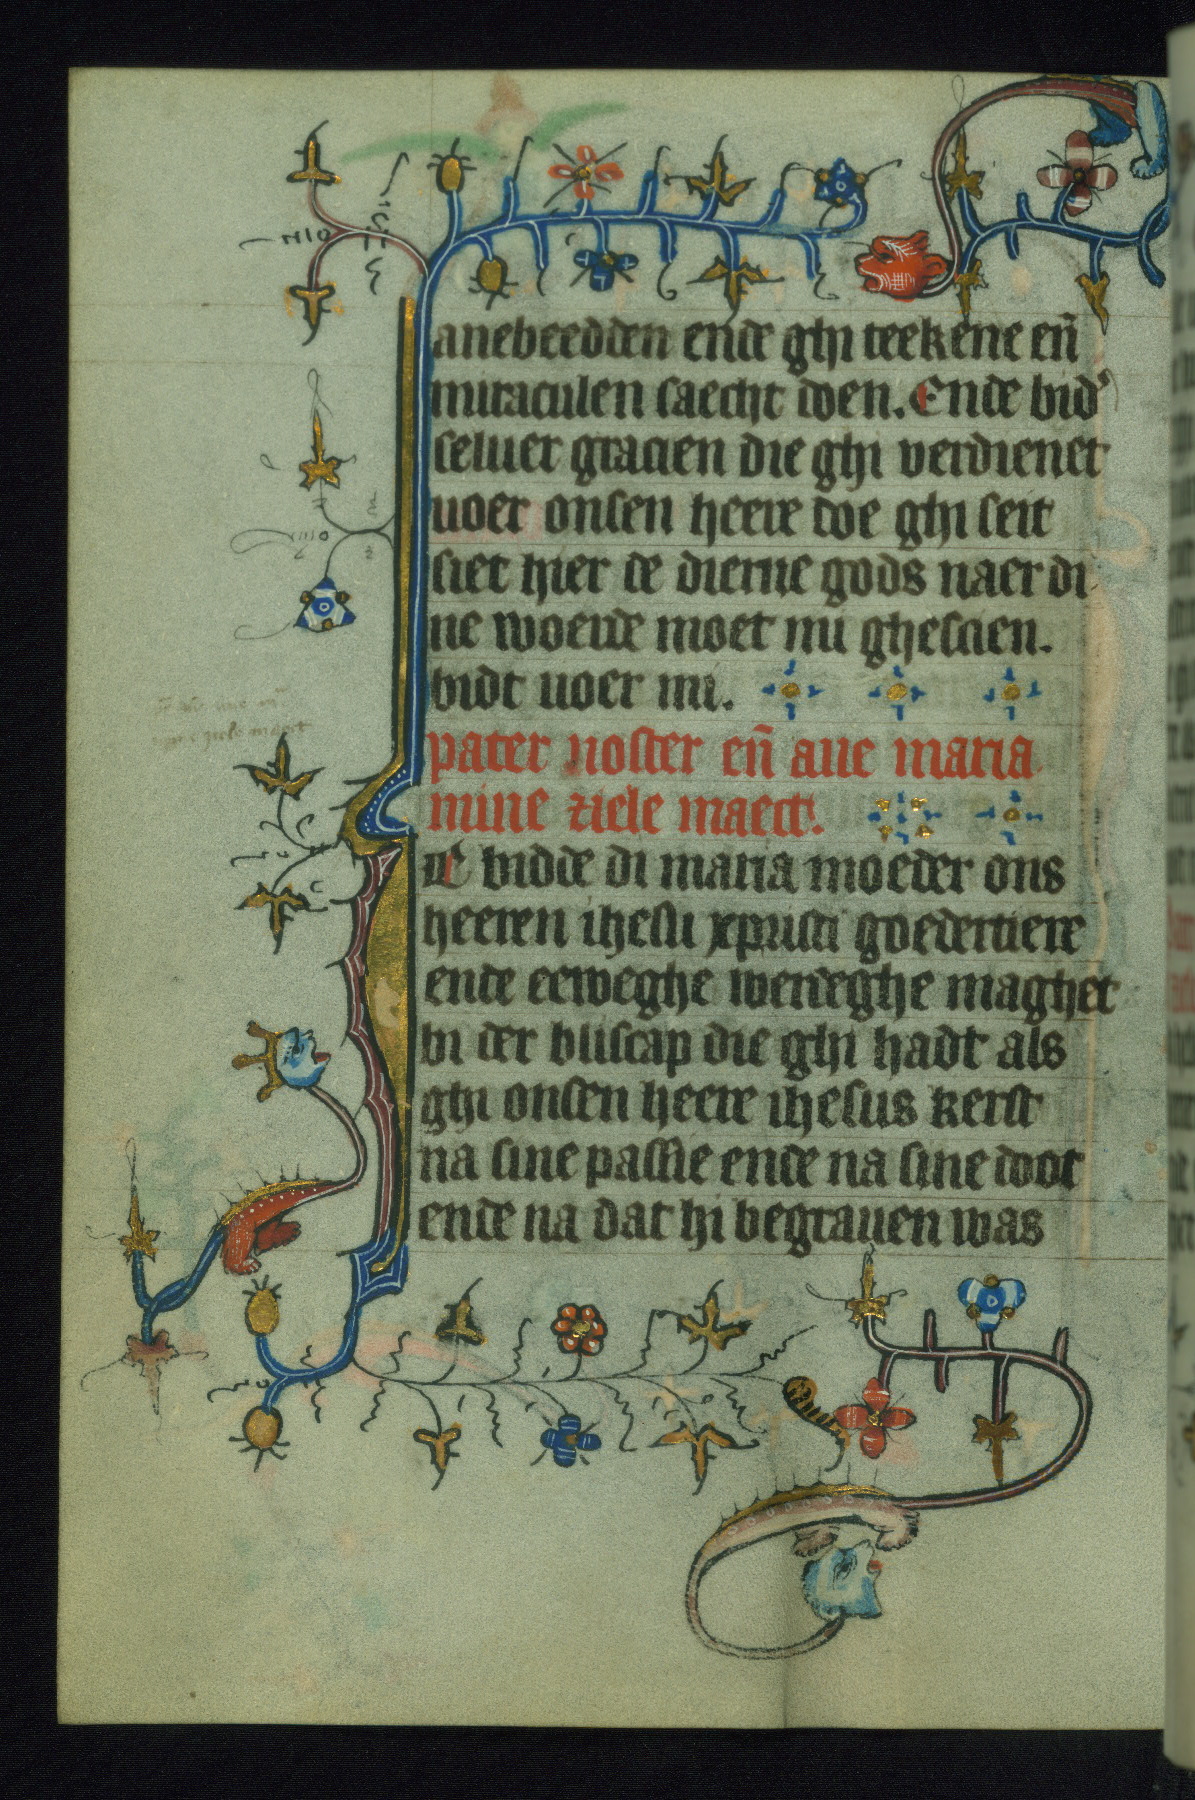 anebeedden ende ghi teekene en̄
miraculen saecht doen. Ende bid'
seluer gracien die ghi verdienet
uoer onsen heere doe ghi seit
siet hier de dierne gods naer di
ne woerde moet mi ghescien.
bidt uoer mi.
pater noster en̄ aue maria
mine ziele maect.
Ic bidde di maria moeder ons
heeren ihesu xpristi goedertiere
ende eeweghe werdeghe maghet
bi der bliscap die ghi hadt als
ghi onsen heere ihesus kerst
na sine passie ende na sine doot
ende na dat hi begrauen was